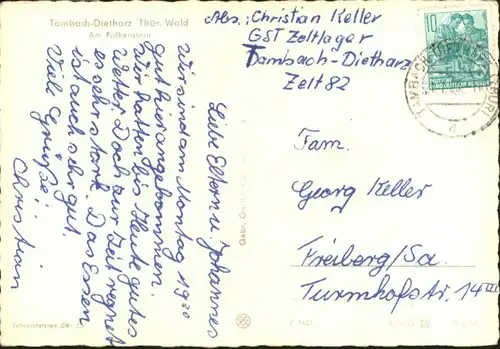 Tambach-Dietharz Thür. Wald
Am Falkenstein
Abs.: Christian Keller
GST Zeltlager
Tambach-Dietharz
Zelt 82
Liebe Eltern u. Johannes
Wir sind am Montag 19²⁰
gut hier angekommen.
Wir hatten bis Heute gutes
Wetter. Doch zur Zeit regnet
es sehr stark. Das Essen
ist auch sehr gut.
Viele Grüße!!
Christian
Fam.
Georg Keller
Freiberg/Sa.
Turmhofstr. 14 III
10
DEUTSCHE
DEMOKRATISCHE REPUBLIK
TAMBACH-DIETHARZ
d